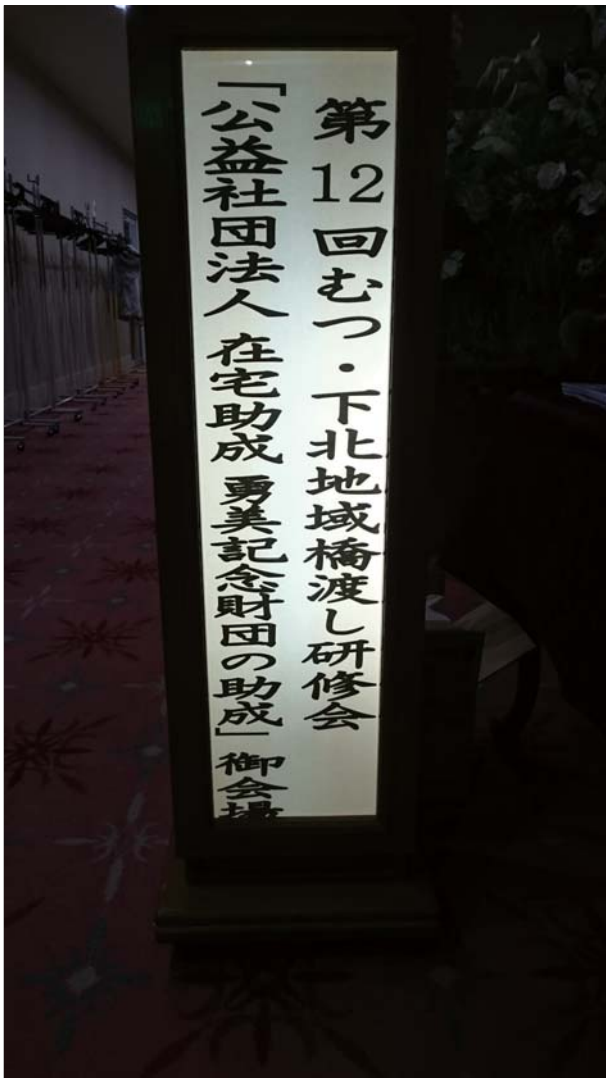 第12回むつ・下北地域橋渡し研修会
「公益社団法人 在宅助成 勇美記念財団の助成」 御会場